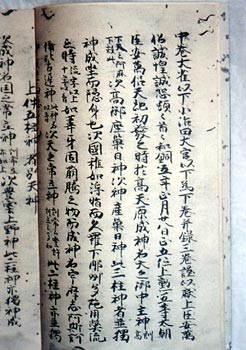 中巻大雀以下小治田大宮以前為下巻并録三巻謹以献上臣安萬
侶誠惶誠恐頓々首々 和銅五年正月廿八日正五位上勲五等太朝
臣安萬侶天地初發之時於高天原成神名天之御中主神訓高
下天云阿麻下效此次高御産巣日神次神産巣日神此三柱神者並獨
神成坐而隠身也次國稚如浮脂而久羅下那州多陁用弊流
之時如葦牙因萌騰之物而成神名宇麻志阿斯訶
備比古遅神次天之常立神此二柱神亦獨神
上件五柱神者別天神
次成神名國之常立神次豊雲上野神此二柱神亦獨神成